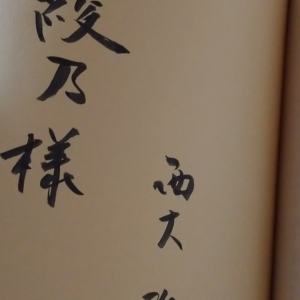 綾乃様
西大